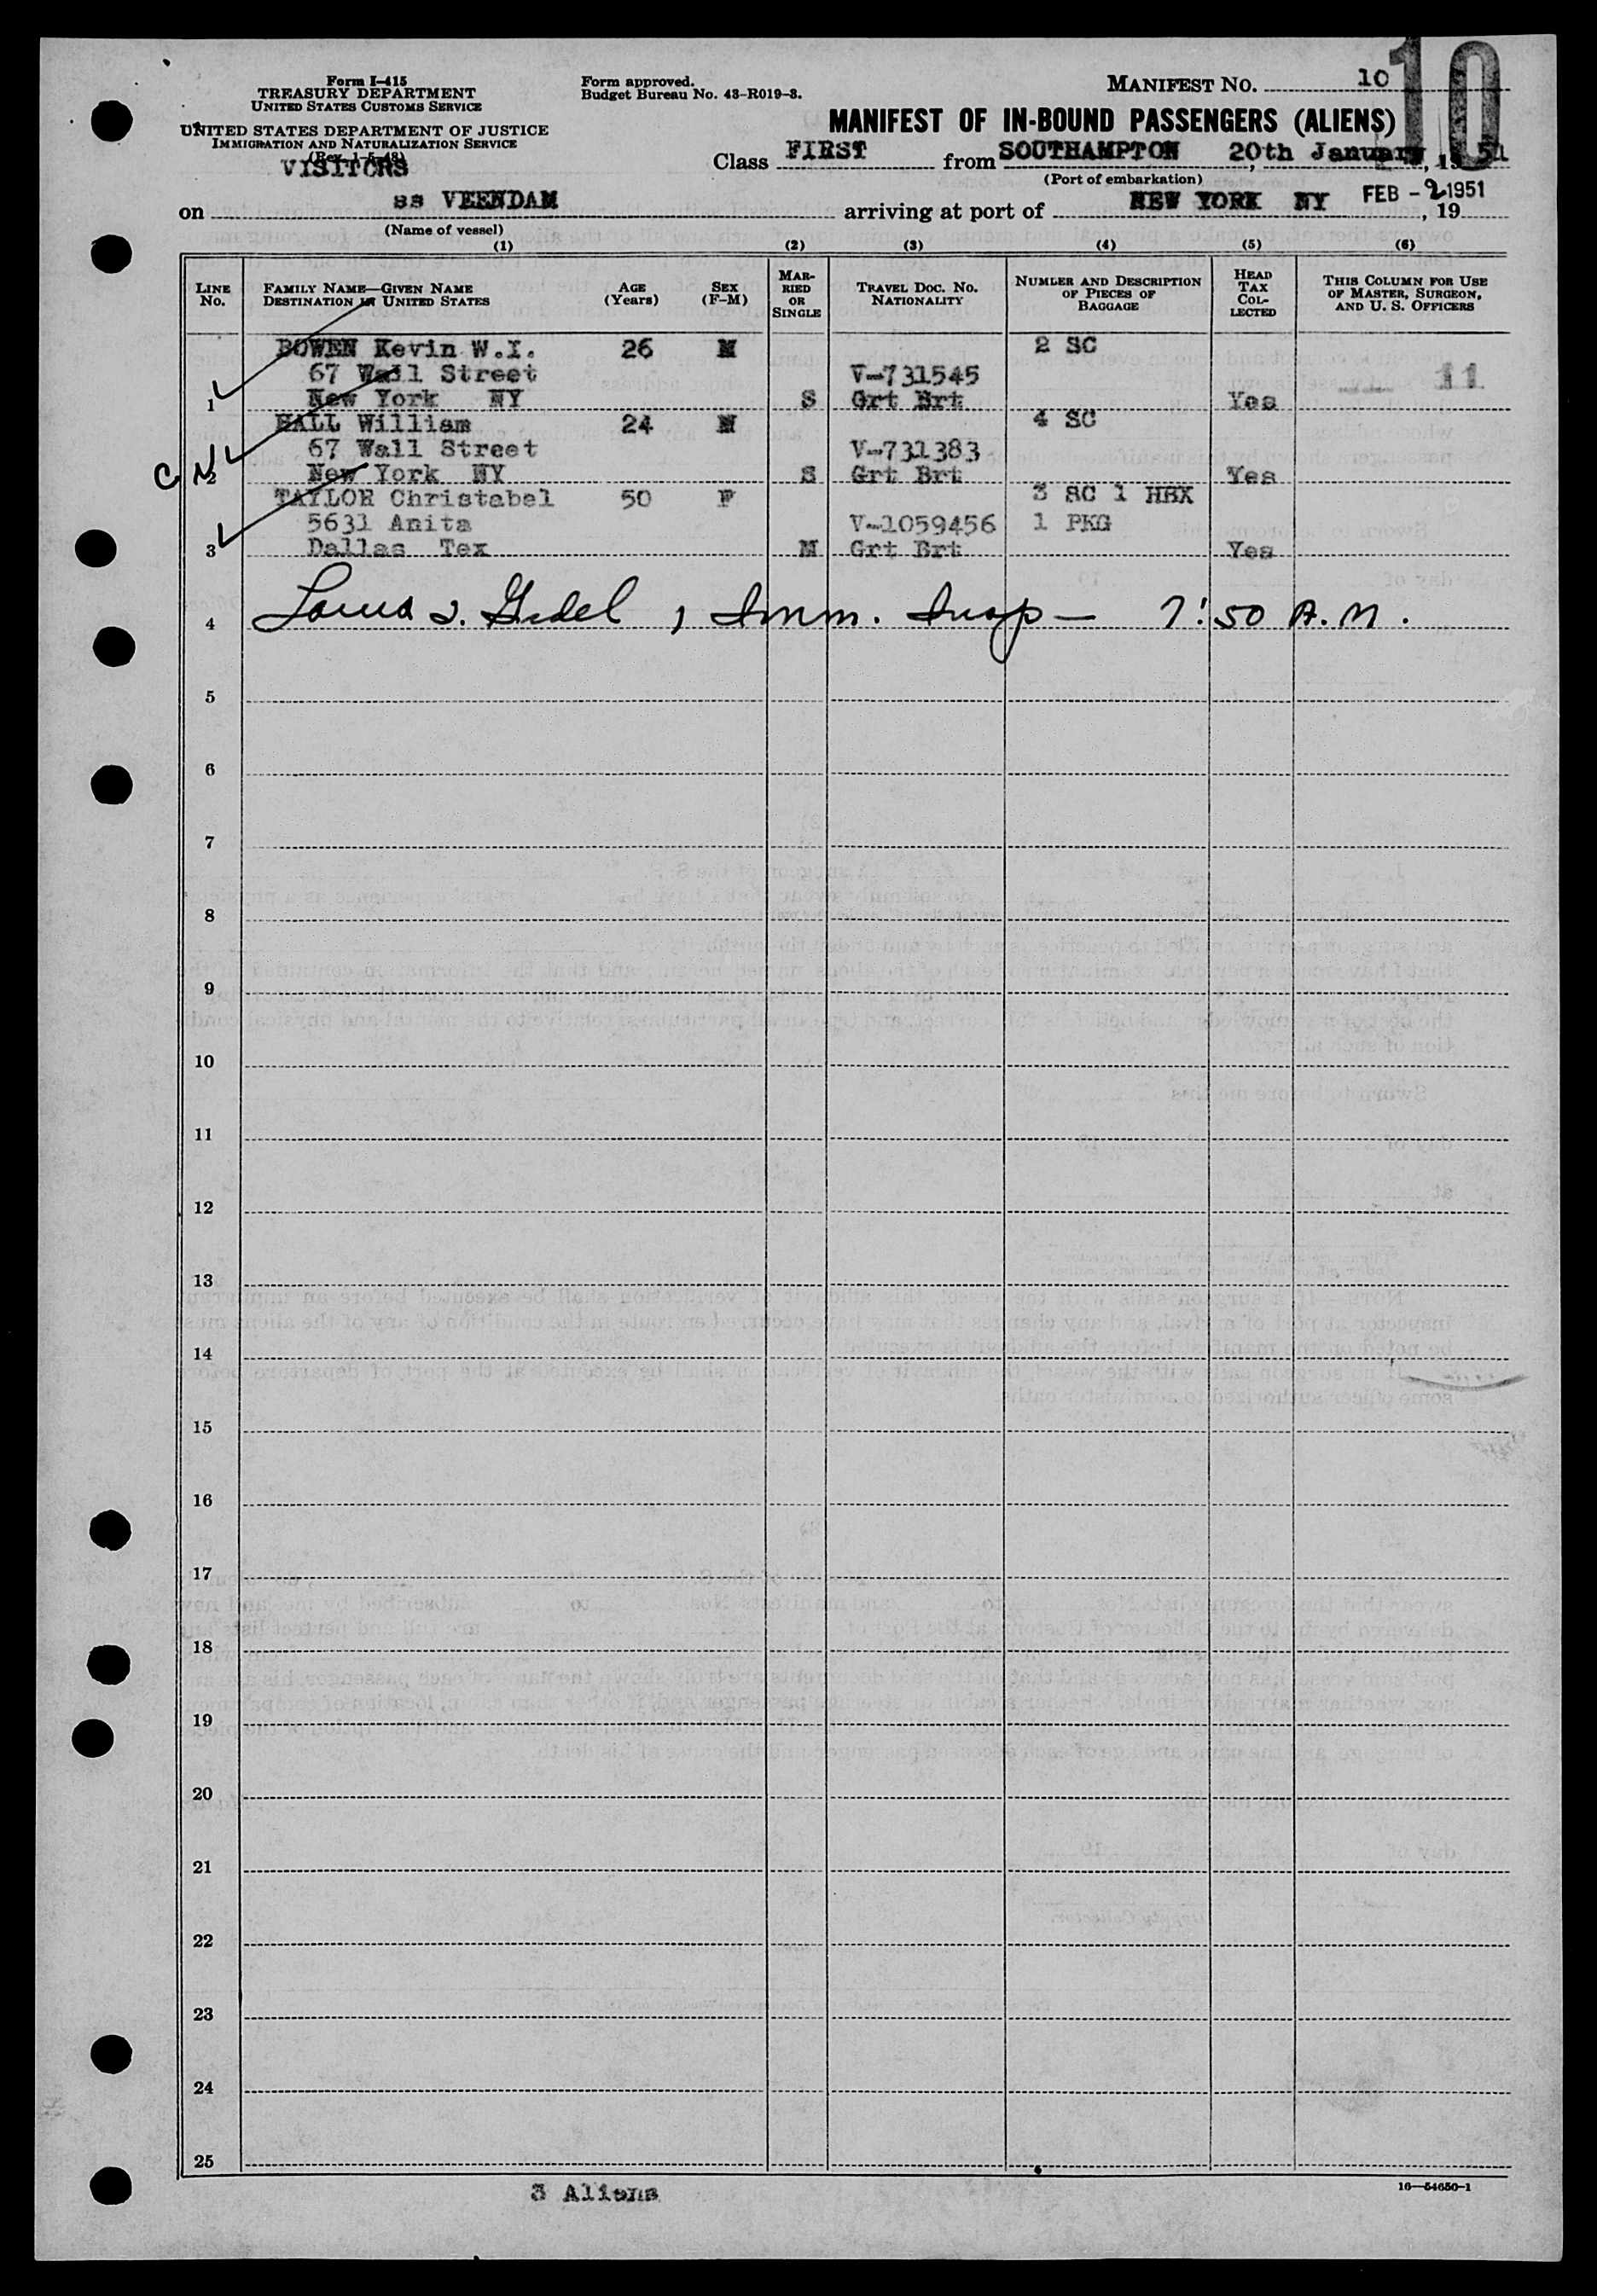 Form I-415
TREASURY DEPARTMENT
UNITED STATES CUSTOMS SERVICE
UNITED STATES DEPARTMENT OF JUSTICE
IMMIGRATION AND NATURALIZATION SERVICE
(Rev. 1-5-48)
VISITORS
Form approved.
Budget Bureau No. 43-R019-3.
MANIFEST NO. 10
10
MANIFEST OF IN-BOUND PASSENGERS (ALIENS)
Class FIRST from SOUTHAMPTON 20th January, 1951
(Port of embarkation)
on ss VEENDAM arriving at port of NEW YORK NY FEB -2 1951, 19
(Name of vessel)
(1) (2) (3) (4) (5) (6)
LINE No. FAMILY NAME—GIVEN NAME DESTINATION IN UNITED STATES AGE (Years) SEX (F-M) MARRIED OR SINGLE TRAVEL DOC. NO. NATIONALITY NUMBER AND DESCRIPTION OF PIECES OF BAGGAGE HEAD TAX COLLECTED THIS COLUMN FOR USE OF MASTER, SURGEON, AND U. S. OFFICERS
BOWEN Kevin W.I. 26 M 2 SC
67 Wall Street V-731545 11
1 New York NY S Grt Brt Yes
HALL William 24 M 4 SC
67 Wall Street V-731383
C N 2 New York NY S Grt Brt Yes
TAYLOR Christabel 50 F 3 SC 1 HBX
5631 Anita V-1059456 1 PKG
3 Dallas Tex M Grt Brt Yes
4 Imm. Insp — 7:50 A.M.
5
6
7
8
9
10
11
12
13
14
15
16
17
18
19
20
21
22
23
24
25
3 Aliens
16—54650-1